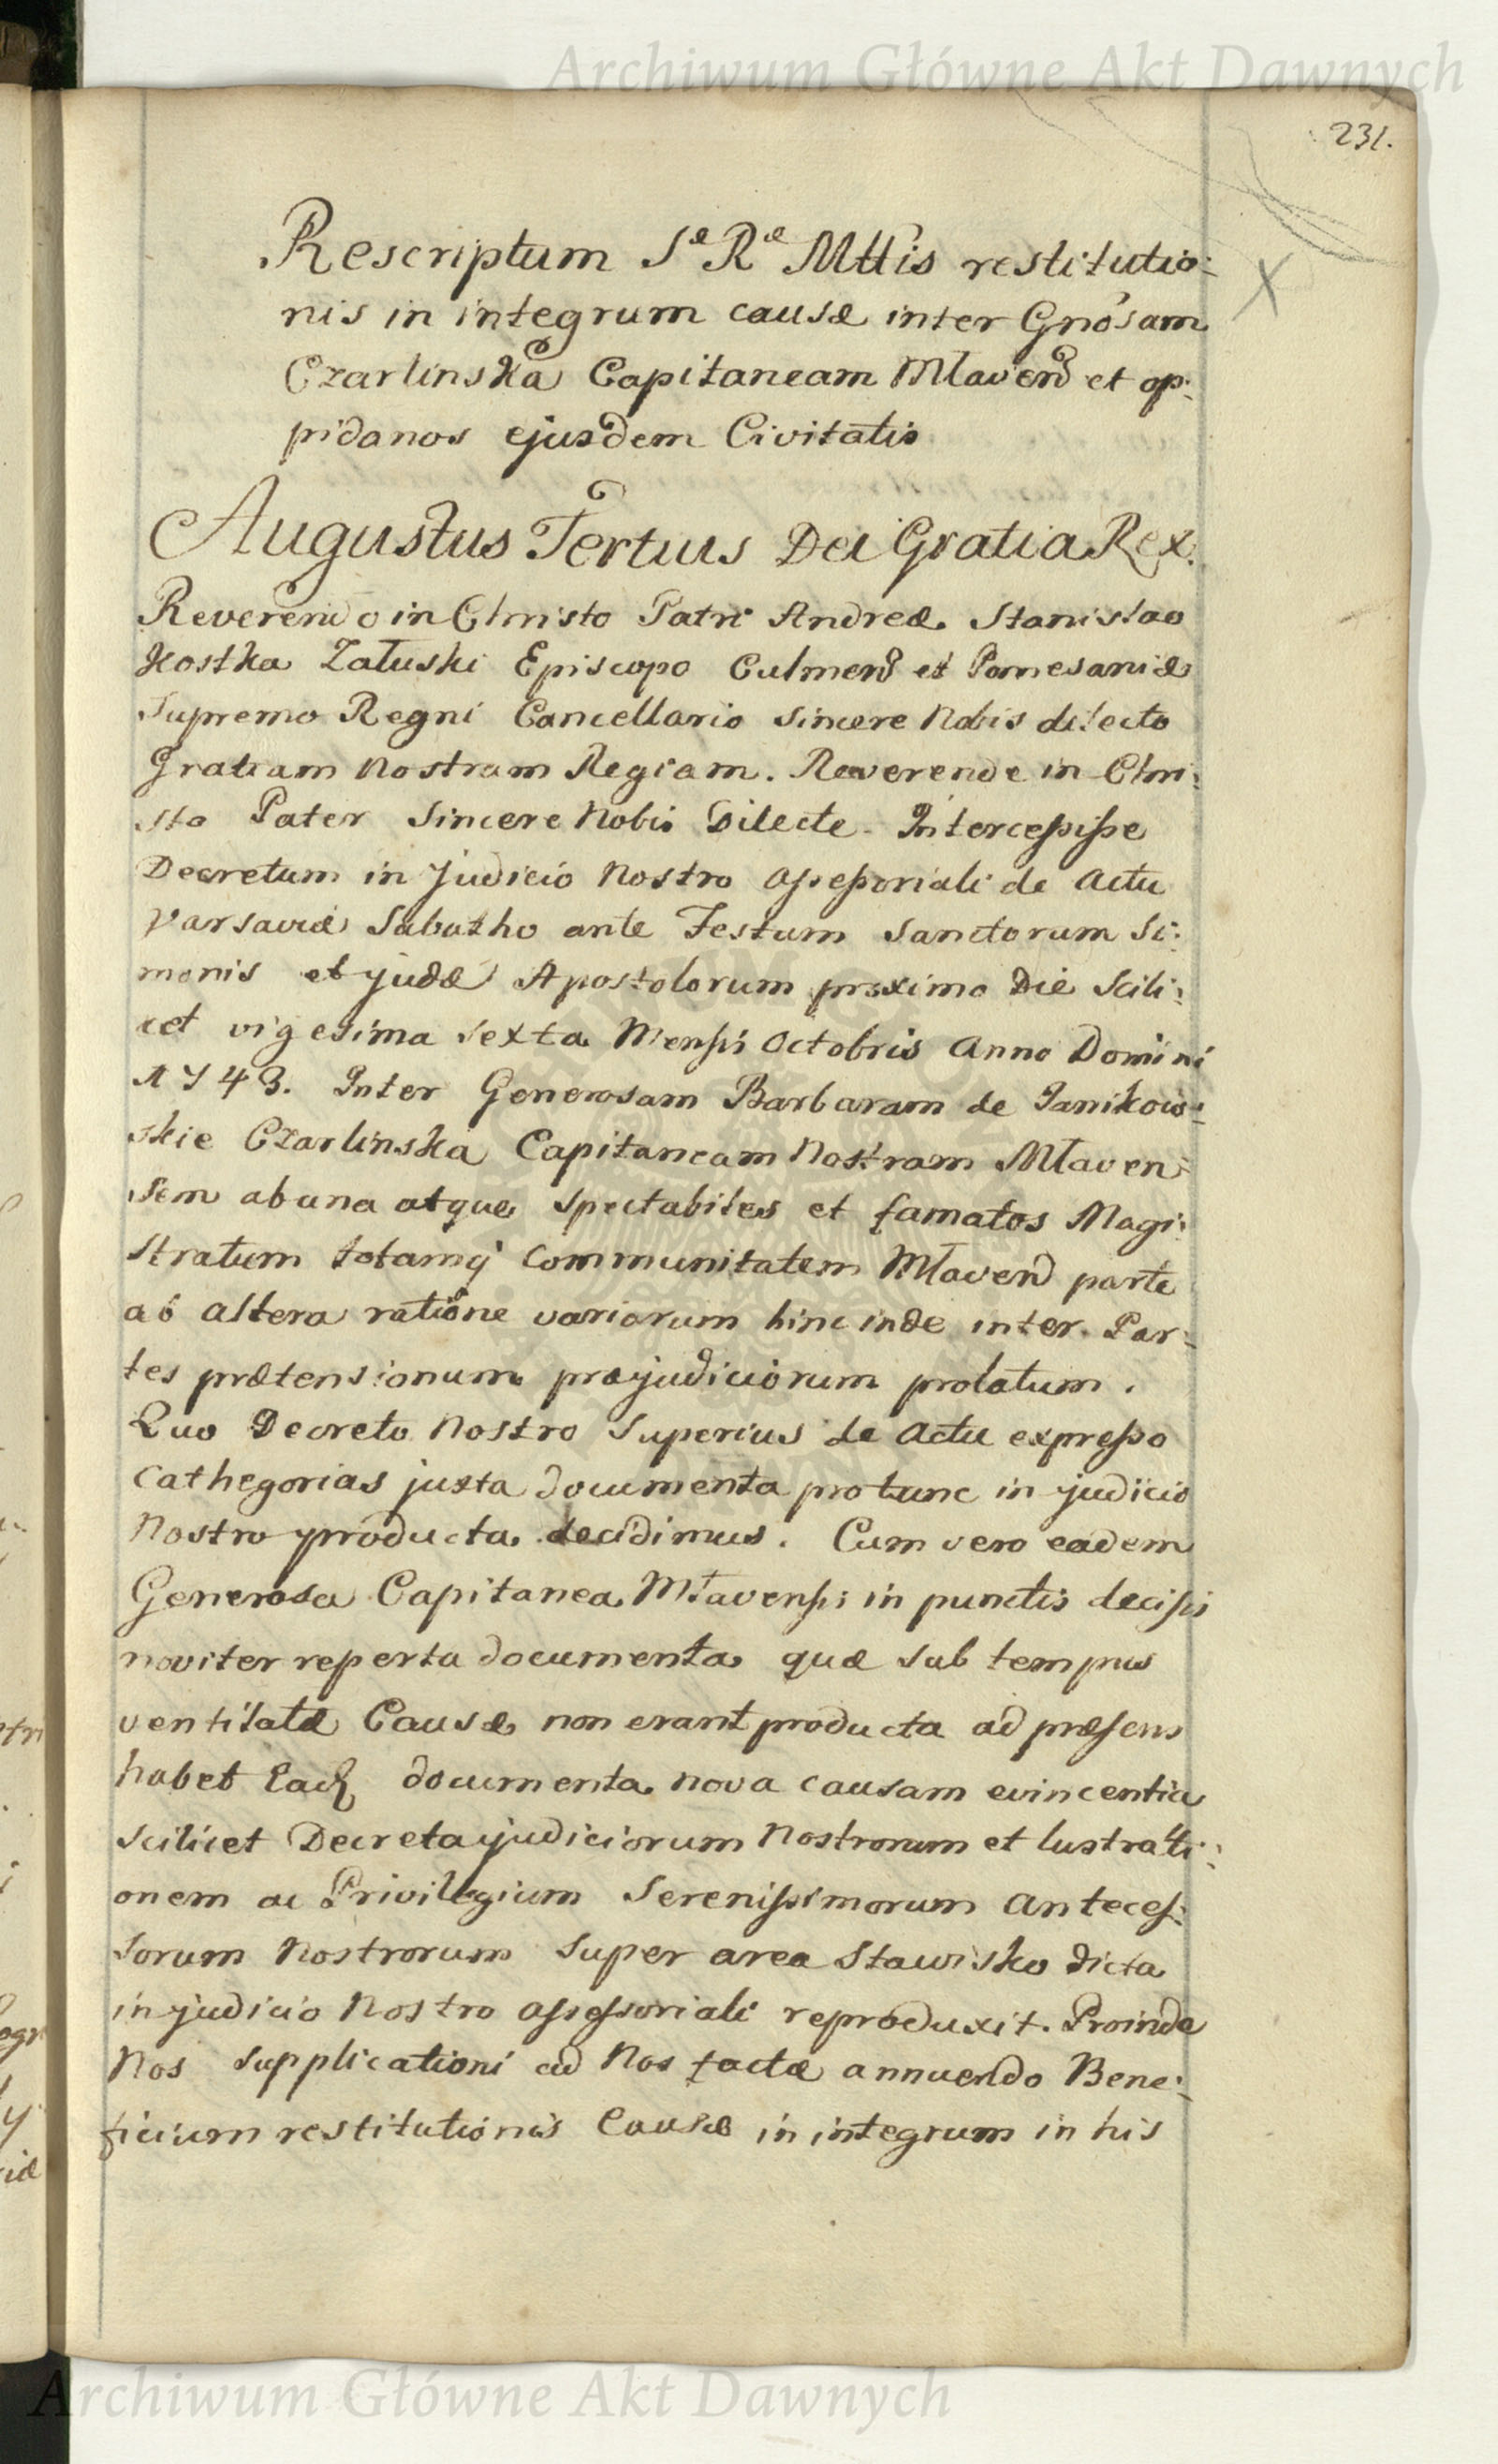 Archiwum Główne Akt Dawnych
231.
Rescriptum Sæ Ræ Mttis restitutio:
nis in integrum causæ inter Gnosam
Czarlinska Capitaneam Młaven et op:
pidanos ejusdem Civitatis
X
Augustus Tertius Dei Gratia Rex.
Reverendo in Christo Patri Andreæ Stanislao
Kostka Załuski Episcopo Culmen et Pomesaniæ
Supremo Regni Cancellario Sincere Nobis dilecto
Gratiam Nostram Regiam. Reverende in Chri:
sto Pater Sincere Nobis Dilecte. Intercessisse
Decretum in Judicio Nostro Assessoriali de Actu
Varsaviæ Sabatho ante Festum Sanctorum Si:
monis et Judæ Apostolorum proximo Die Scili:
cet vigesima sexta Mensis Octobris Anno Domini
1743. Inter Generosam Barbaram de Janikow:
skie Czarlinska Capitaneam Nostram Młaven:
sem ab una atque Spectabiles et famatos Magi:
stratum totamq communitatem Młaven parte
ab altera ratione variorum hinc inde inter Par:
tes prætensionum præjudiciorum prolatum.
Quo Decreto Nostro Superius de Actu expresso
Cathegorias juxta documenta protunc in judicio
Nostro producta decidimus. Cum vero eadem
Generosa Capitanea Młavensis in punctis decisis
noviter reperta documenta quæ sub tempus
ventilatæ Causæ non erant producta ad præsens
habet documenta nova causam evincentia
scilicet Decreta judiciorum Nostrorum et lustrati:
onem ac Privilegium Serenissimorum Anteces:
sorum Nostrorum super area Stawisko dicta
in judicio Nostro Assessoriali reproduxit. Proinde
Nos Supplicationi ad Nos factæ annuendo Bene:
ficium restitutionis Causæ in integrum in his
Archiwum Główne Akt Dawnych